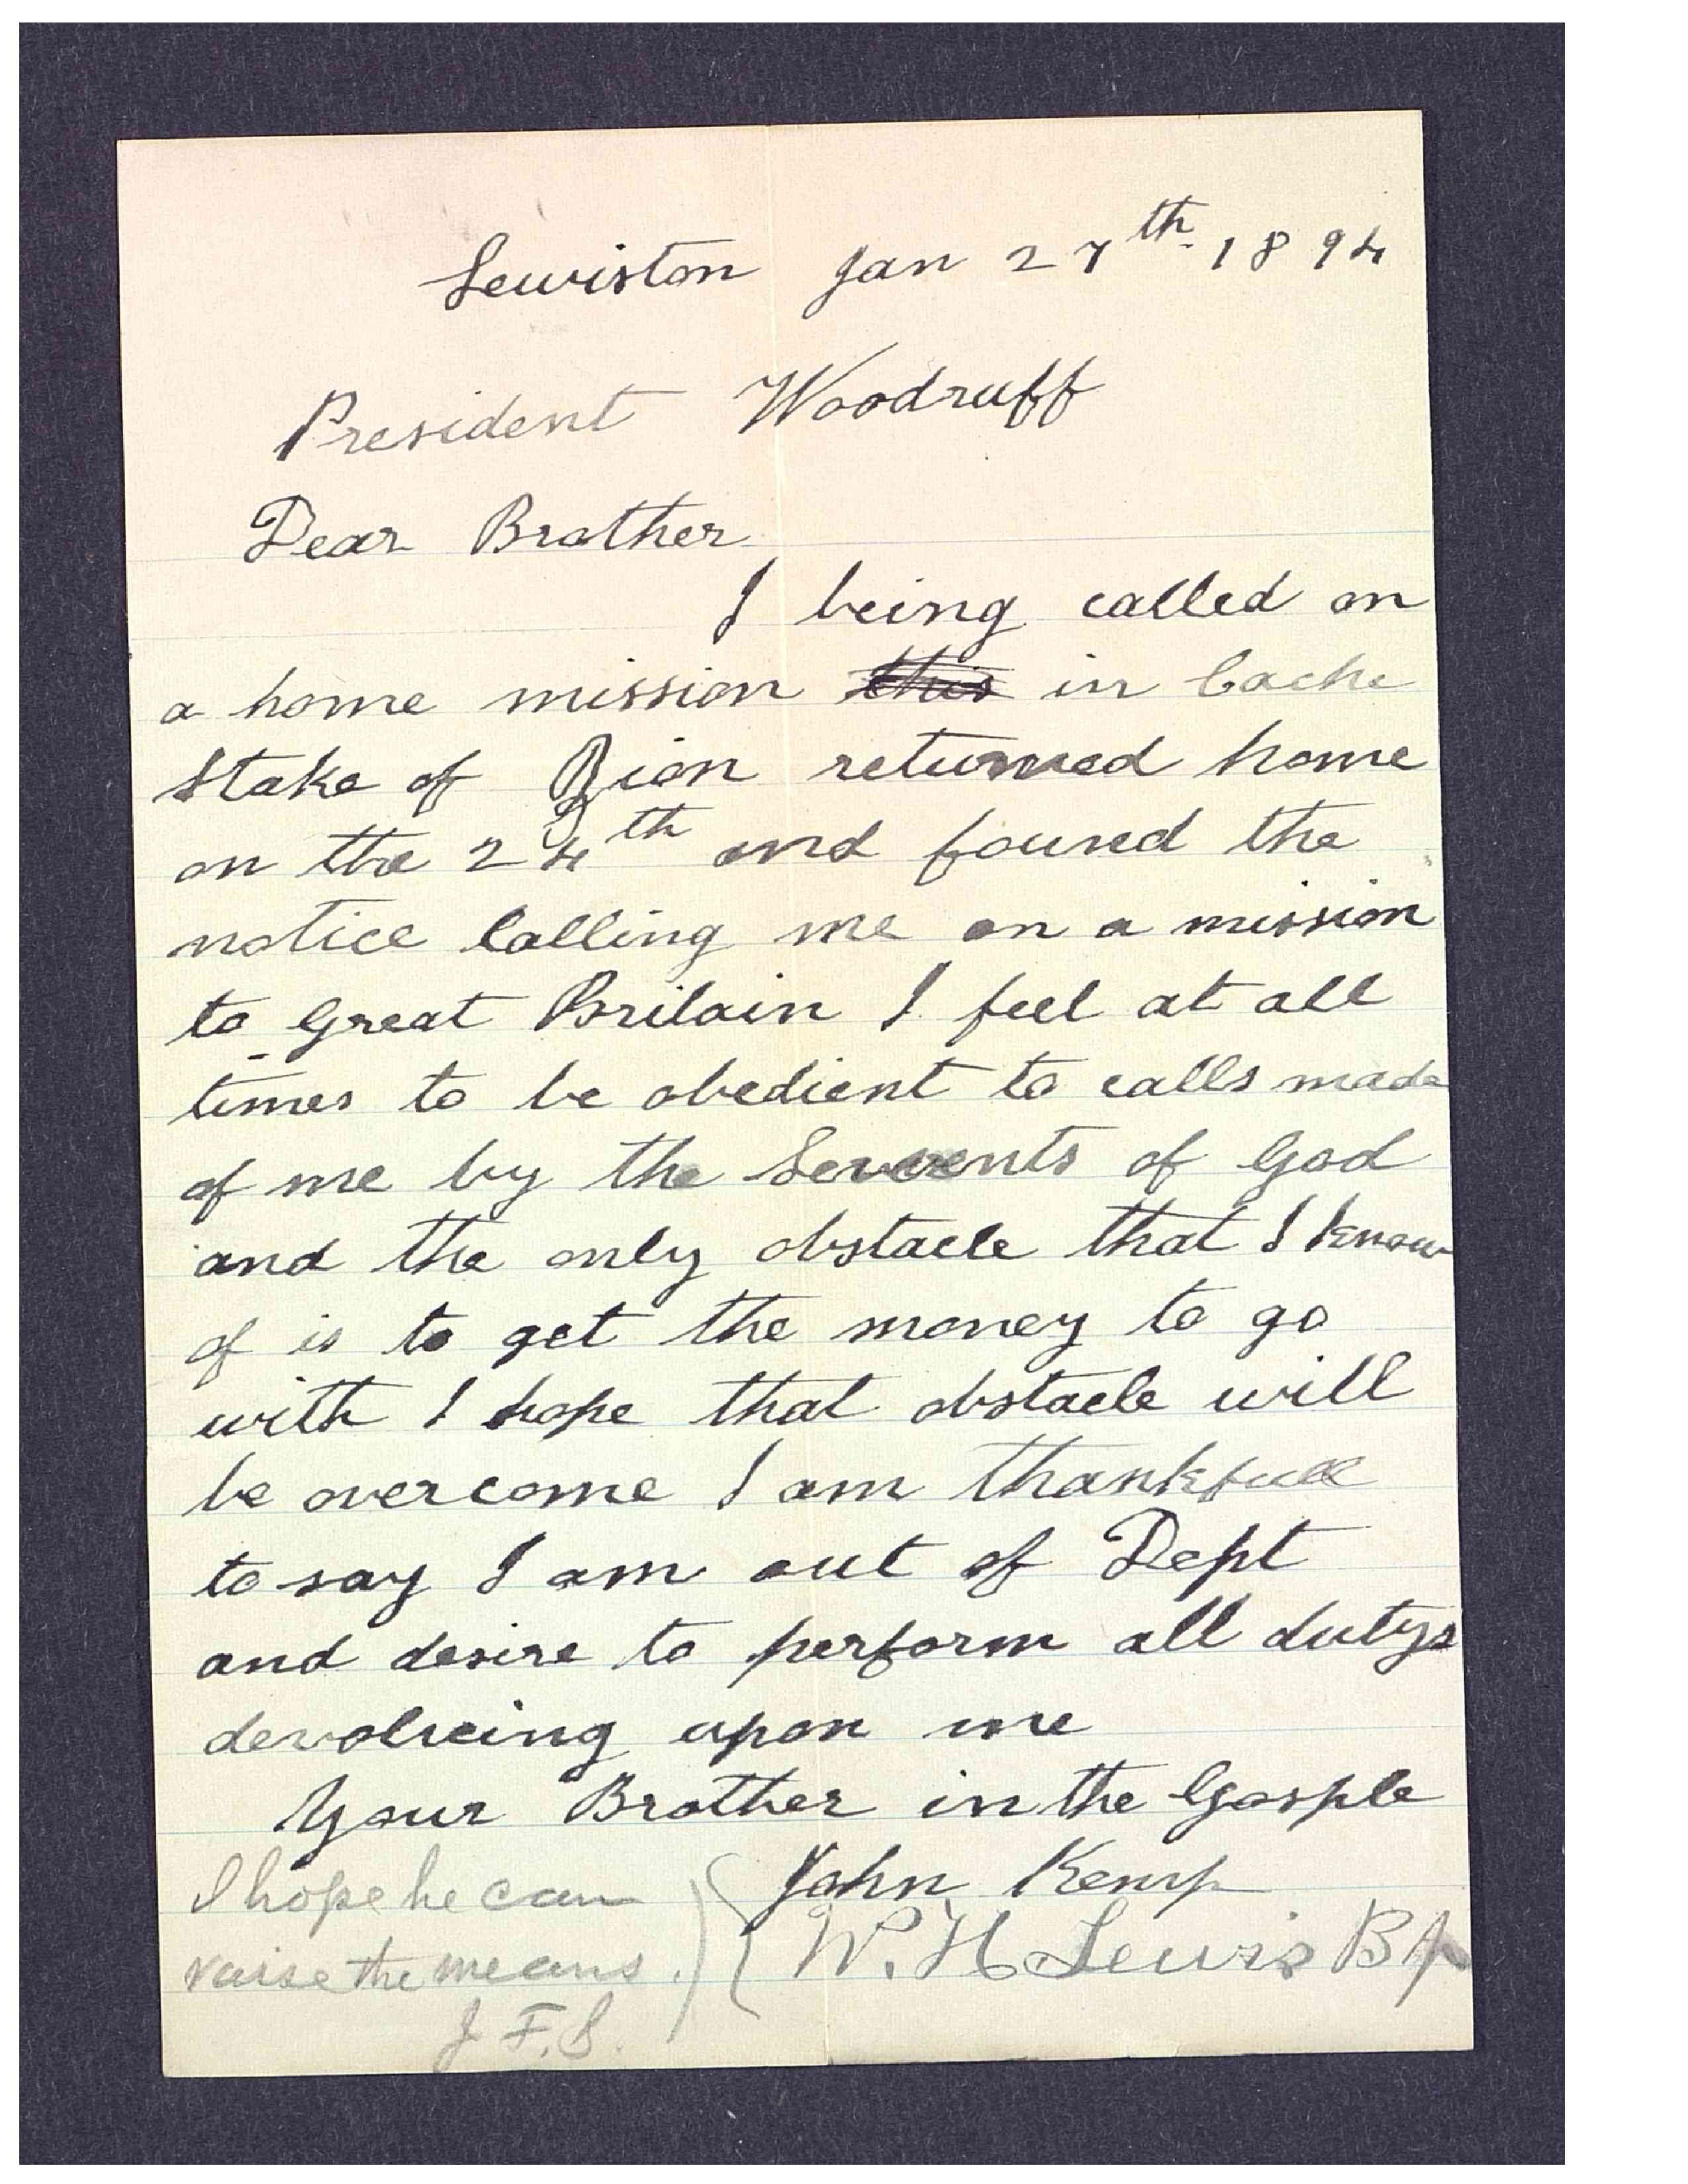 Lewiston Jan 27th 1894
President Woodruff
Dear Brother
I being called on
a home mission this in Cache
Stake of Zion returned home
on the 24th and found the
notice Calling me on a mission
to Great Britain I feel at all
times to be obedient to calls made
of me by the Servents of God
and the only obstacle that I know
of is to get the money to go
with I hope that obstacle will
be overcome I am thankfull
to say I am out of Dept
and desire to perform all dutys
devolveing upon me
Your Brother in the Gosple
John Kemp
W. H Lewis Bp
I hope he can
raise the means.
J. F. S.